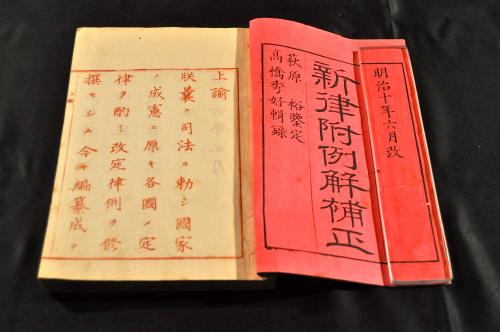 明治十年六月改
新律附例解補正
萩原 裕鑒定
髙橋秀好輯錄
上諭
朕曩ニ司法ニ勅シ國家
ノ成憲ニ原キ各國ノ定
律ヲ酌ミ改定律例ヲ修
撰セシム今ヤ編纂成ヲ